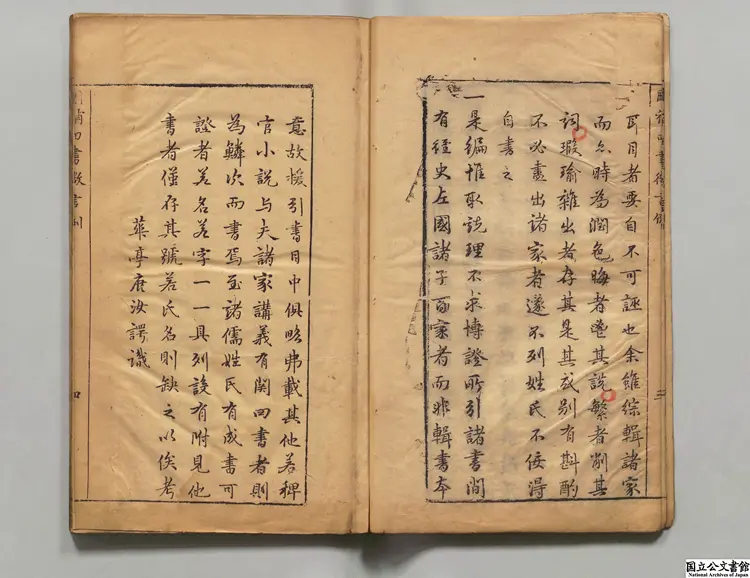 耳目者要自不可誣也余雖綜輯諸家
而亦時為潤色晦者邕其説繁者削其
詞瑕瑜雜出者存其是其或別有斟酌
不必盡出諸家者遂不列姓氏不佞得
自書之
一是編惟取説理不求博證所引諸書間
有經史左國諸子百家者而非輯書本
意故援引書目中俱略弗載其他若稗
官小説与夫諸家講義有関四書者則
為鱗次而書焉至諸儒姓氏有成書可
證者若名若字一一具列設有附見他
書者僅存其號若氏名則缺之以俟考
華亭唐汝諤識
四
三
国立公文書館
National Archives of Japan